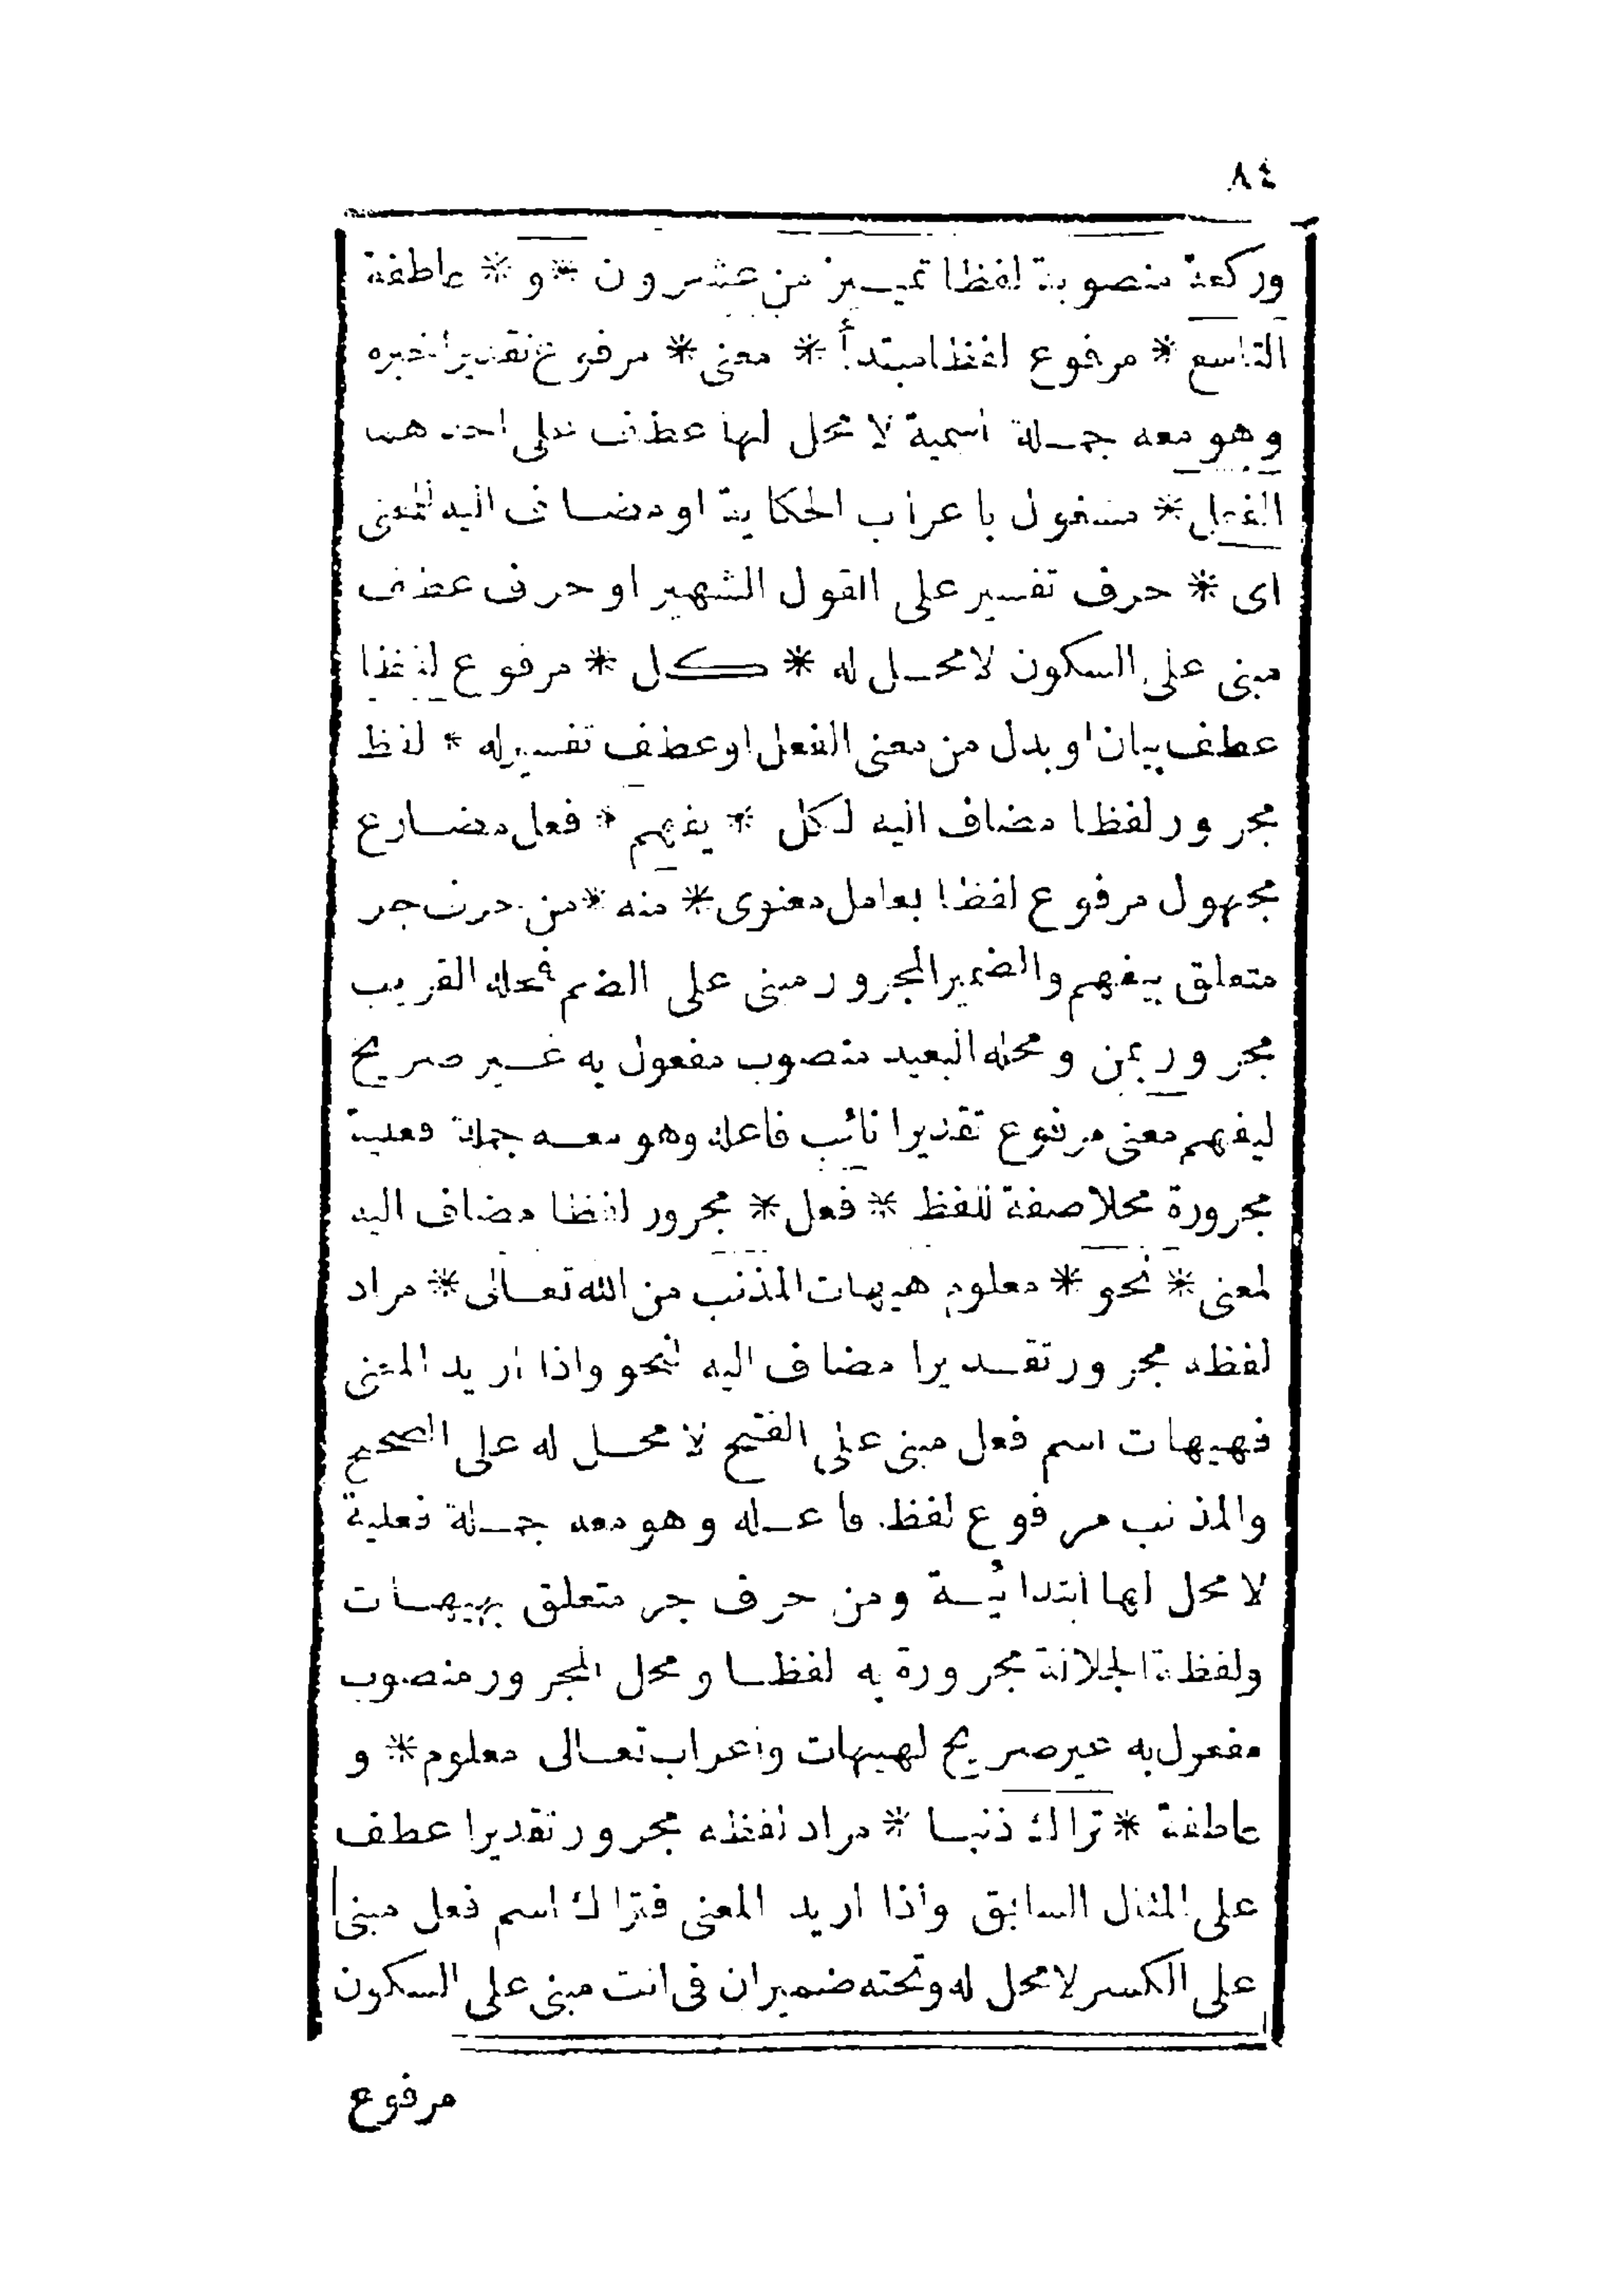 ٨٤
وركعة منصوبة لفظا تمييز من عشرون * و * عاطفة
التاسع * مرفوع لفظا مبتدأ * معنى * مرفوع تقديرا خبره
وهو معه جملة اسمية لا محل لها عطف على احدهما
الفعل * مشغول باعراب الحكاية او مضاف اليه لمعنى
اى * حرف تفسير على القول الشهير او حرف عطف
مبنى على السكون لا محل له * كل * مرفوع لفظا
عطف بيان او بدل من معنى الفعل او عطف تفسير له * لفظ
مجرور لفظا مضاف اليه لكل * يفهم * فعل مضارع
مجهول مرفوع لفظا بعامل معنوى * منه * من حرف جر
متعلق بيفهم والضمير المجرور مبنى على الضم فمحله القريب
مجرور بمن ومحله البعيد منصوب مفعول به غير صريح
ليفهم معنى مرفوع تقديرا نائب فاعله وهو معه جملة فعلية
مجرورة محلا صفة للفظ * فعل * مجرور لفظا مضاف اليه
لمعنى * نحو * معلوم هيهات المذنب من الله تعالى * مراد
لفظه مجرور تقديرا مضاف اليه لنحو واذا اريد المعنى
فهيهات اسم فعل مبنى على الفتح لا محل له على الصحيح
والمذنب مرفوع لفظا فاعله وهو معه جملة فعلية
لا محل لها ابتدائية ومن حرف جر متعلق بهيهات
ولفظة الجلالة مجرورة به لفظا ومحل المجرور منصوب
مفعول به غير صريح لهيهات واعراب تعالى معلوم * و
عاطفة * تراك ذنبا * مراد لفظه مجرور تقديرا عطف
على المثال السابق واذا اريد المعنى فتراك اسم فعل مبنى
على الكسر لا محل له وتحته ضمير ان فى انت مبنى على السكون
مرفوع